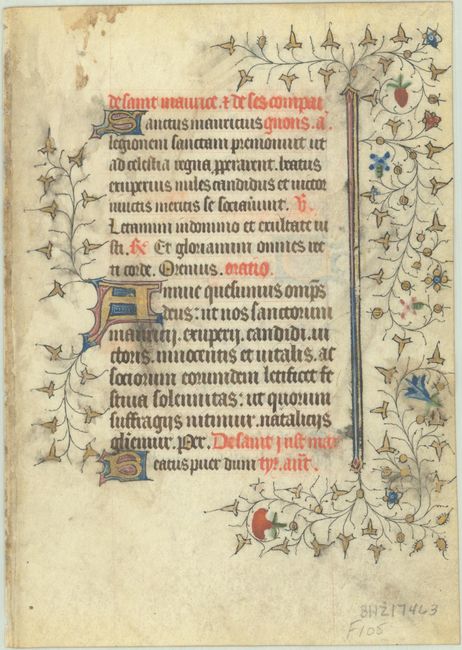 de saint maurice. & de ses compai
Sanctus mauricius gnons. a.
legionem sanctam premonuit ut
ad celestia regna pperarent. beatus
exuperius miles candidus et victor
inuictis meritis se sociauit. V.
Letamini in domino et exultate iu
sti. Re. Et gloriamini omnes rec
ti corde. Oremus. oratio.
Annue quesumus omps
deus: ut nos sanctorum
mauricij. exuperij. candidi. ui
ctoris. innocentis et uitalis. ac
sociorum eorumdem letificet fe
stiua solennitas: ut quorum
suffragijs nitimur. natalicijs
gliemur. Per. De saint just mar
Beatus puer dum tyr. ant.
BH217463
F105